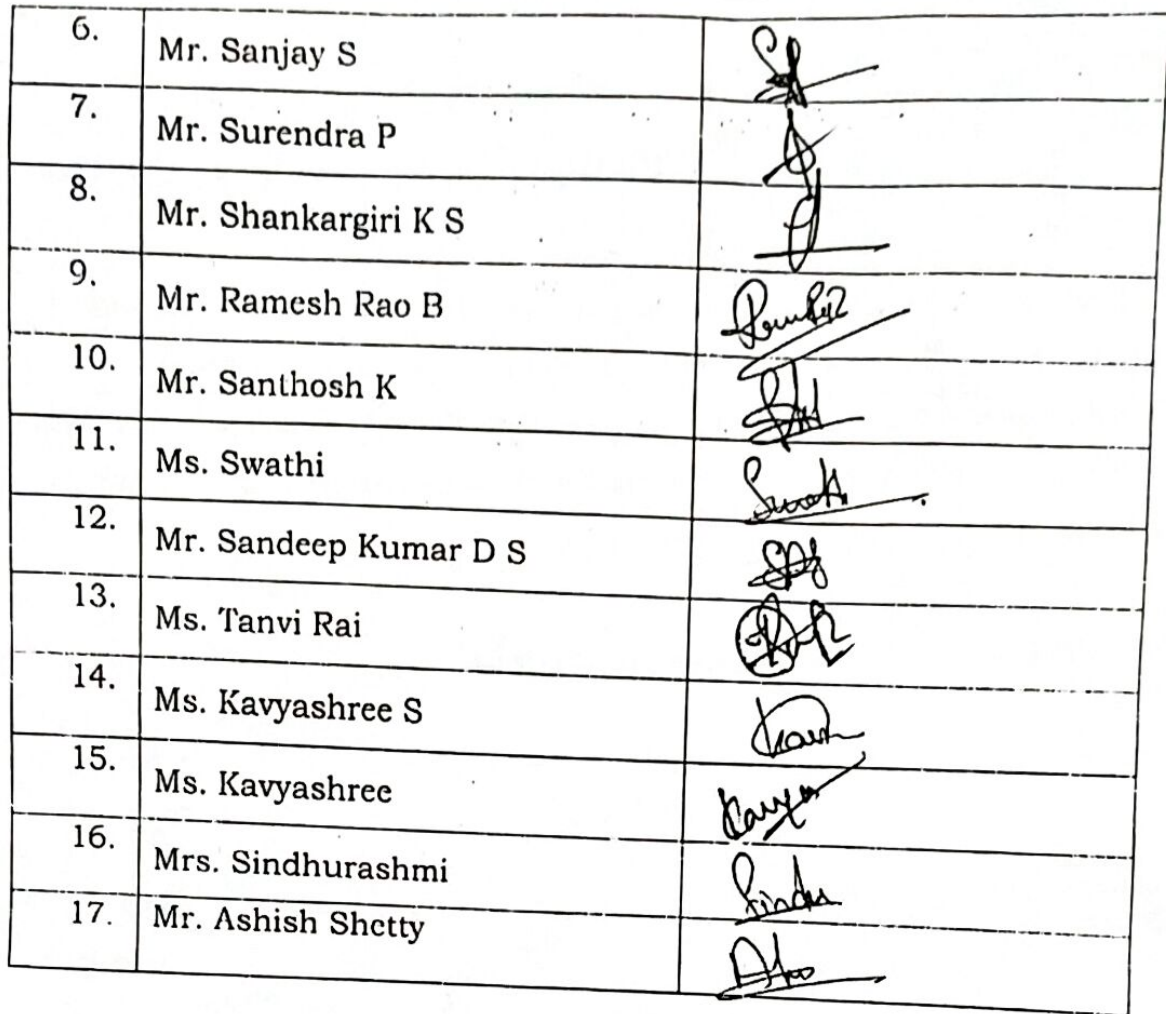 6. Mr. Sanjay S
7. Mr. Surendra P
8. Mr. Shankargiri K S
9. Mr. Ramesh Rao B
10. Mr. Santhosh K
11. Ms. Swathi
12. Mr. Sandeep Kumar D S
13. Ms. Tanvi Rai
14. Ms. Kavyashree S
15. Ms. Kavyashree
16. Mrs. Sindhurashmi
17. Mr. Ashish Shetty